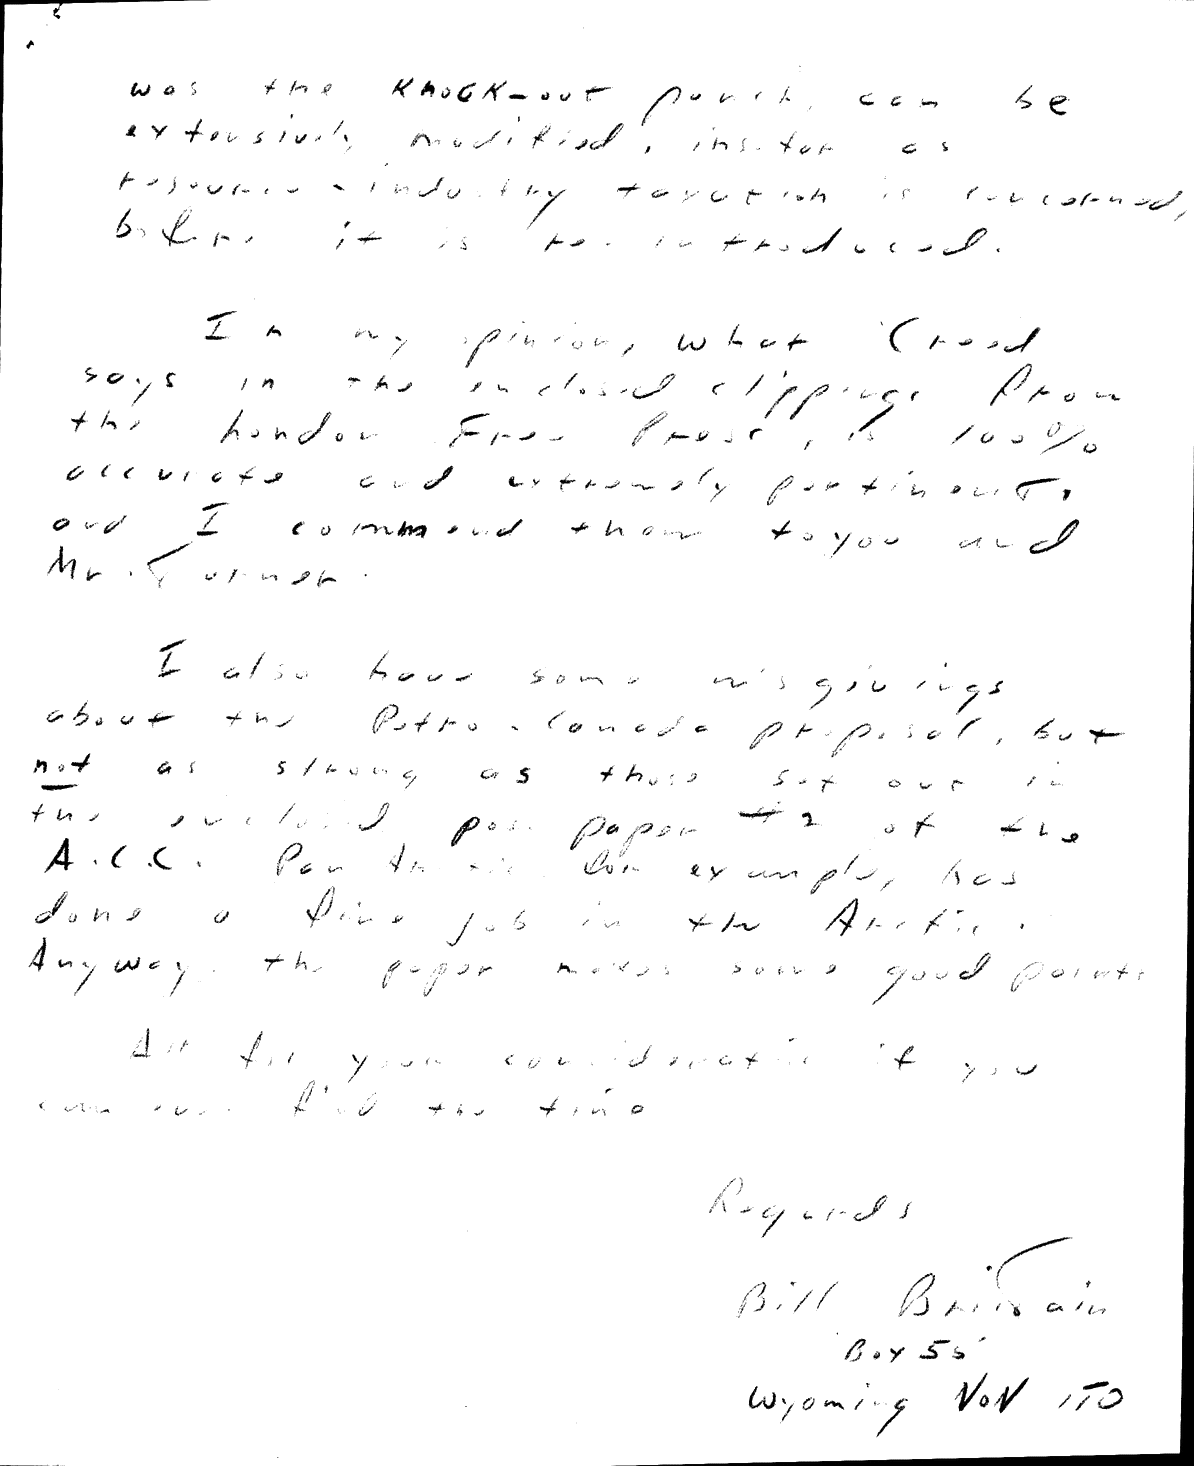 was the knock-out punch, can be
extensively modified, insofar as
resource-industry taxation is concerned,
before it is re-introduced.
In my opinion, what Creed
says in the enclosed clippings from
the London Free Press, is 100%
accurate and extremely pertinent,
and I commend them to you and
Mr. Turner.
I also have some misgivings
about the Petro-Canada proposal, but
not as strong as those set out in
the enclosed pos. paper #2 of the
A.C.C. Pan Arctic for example, has
done a fine job in the Arctic.
Anyway, the paper makes some good points
All for your consideration if you
can ever find the time
Regards
Bill Brittain
Box 55
Wyoming NON 1T0